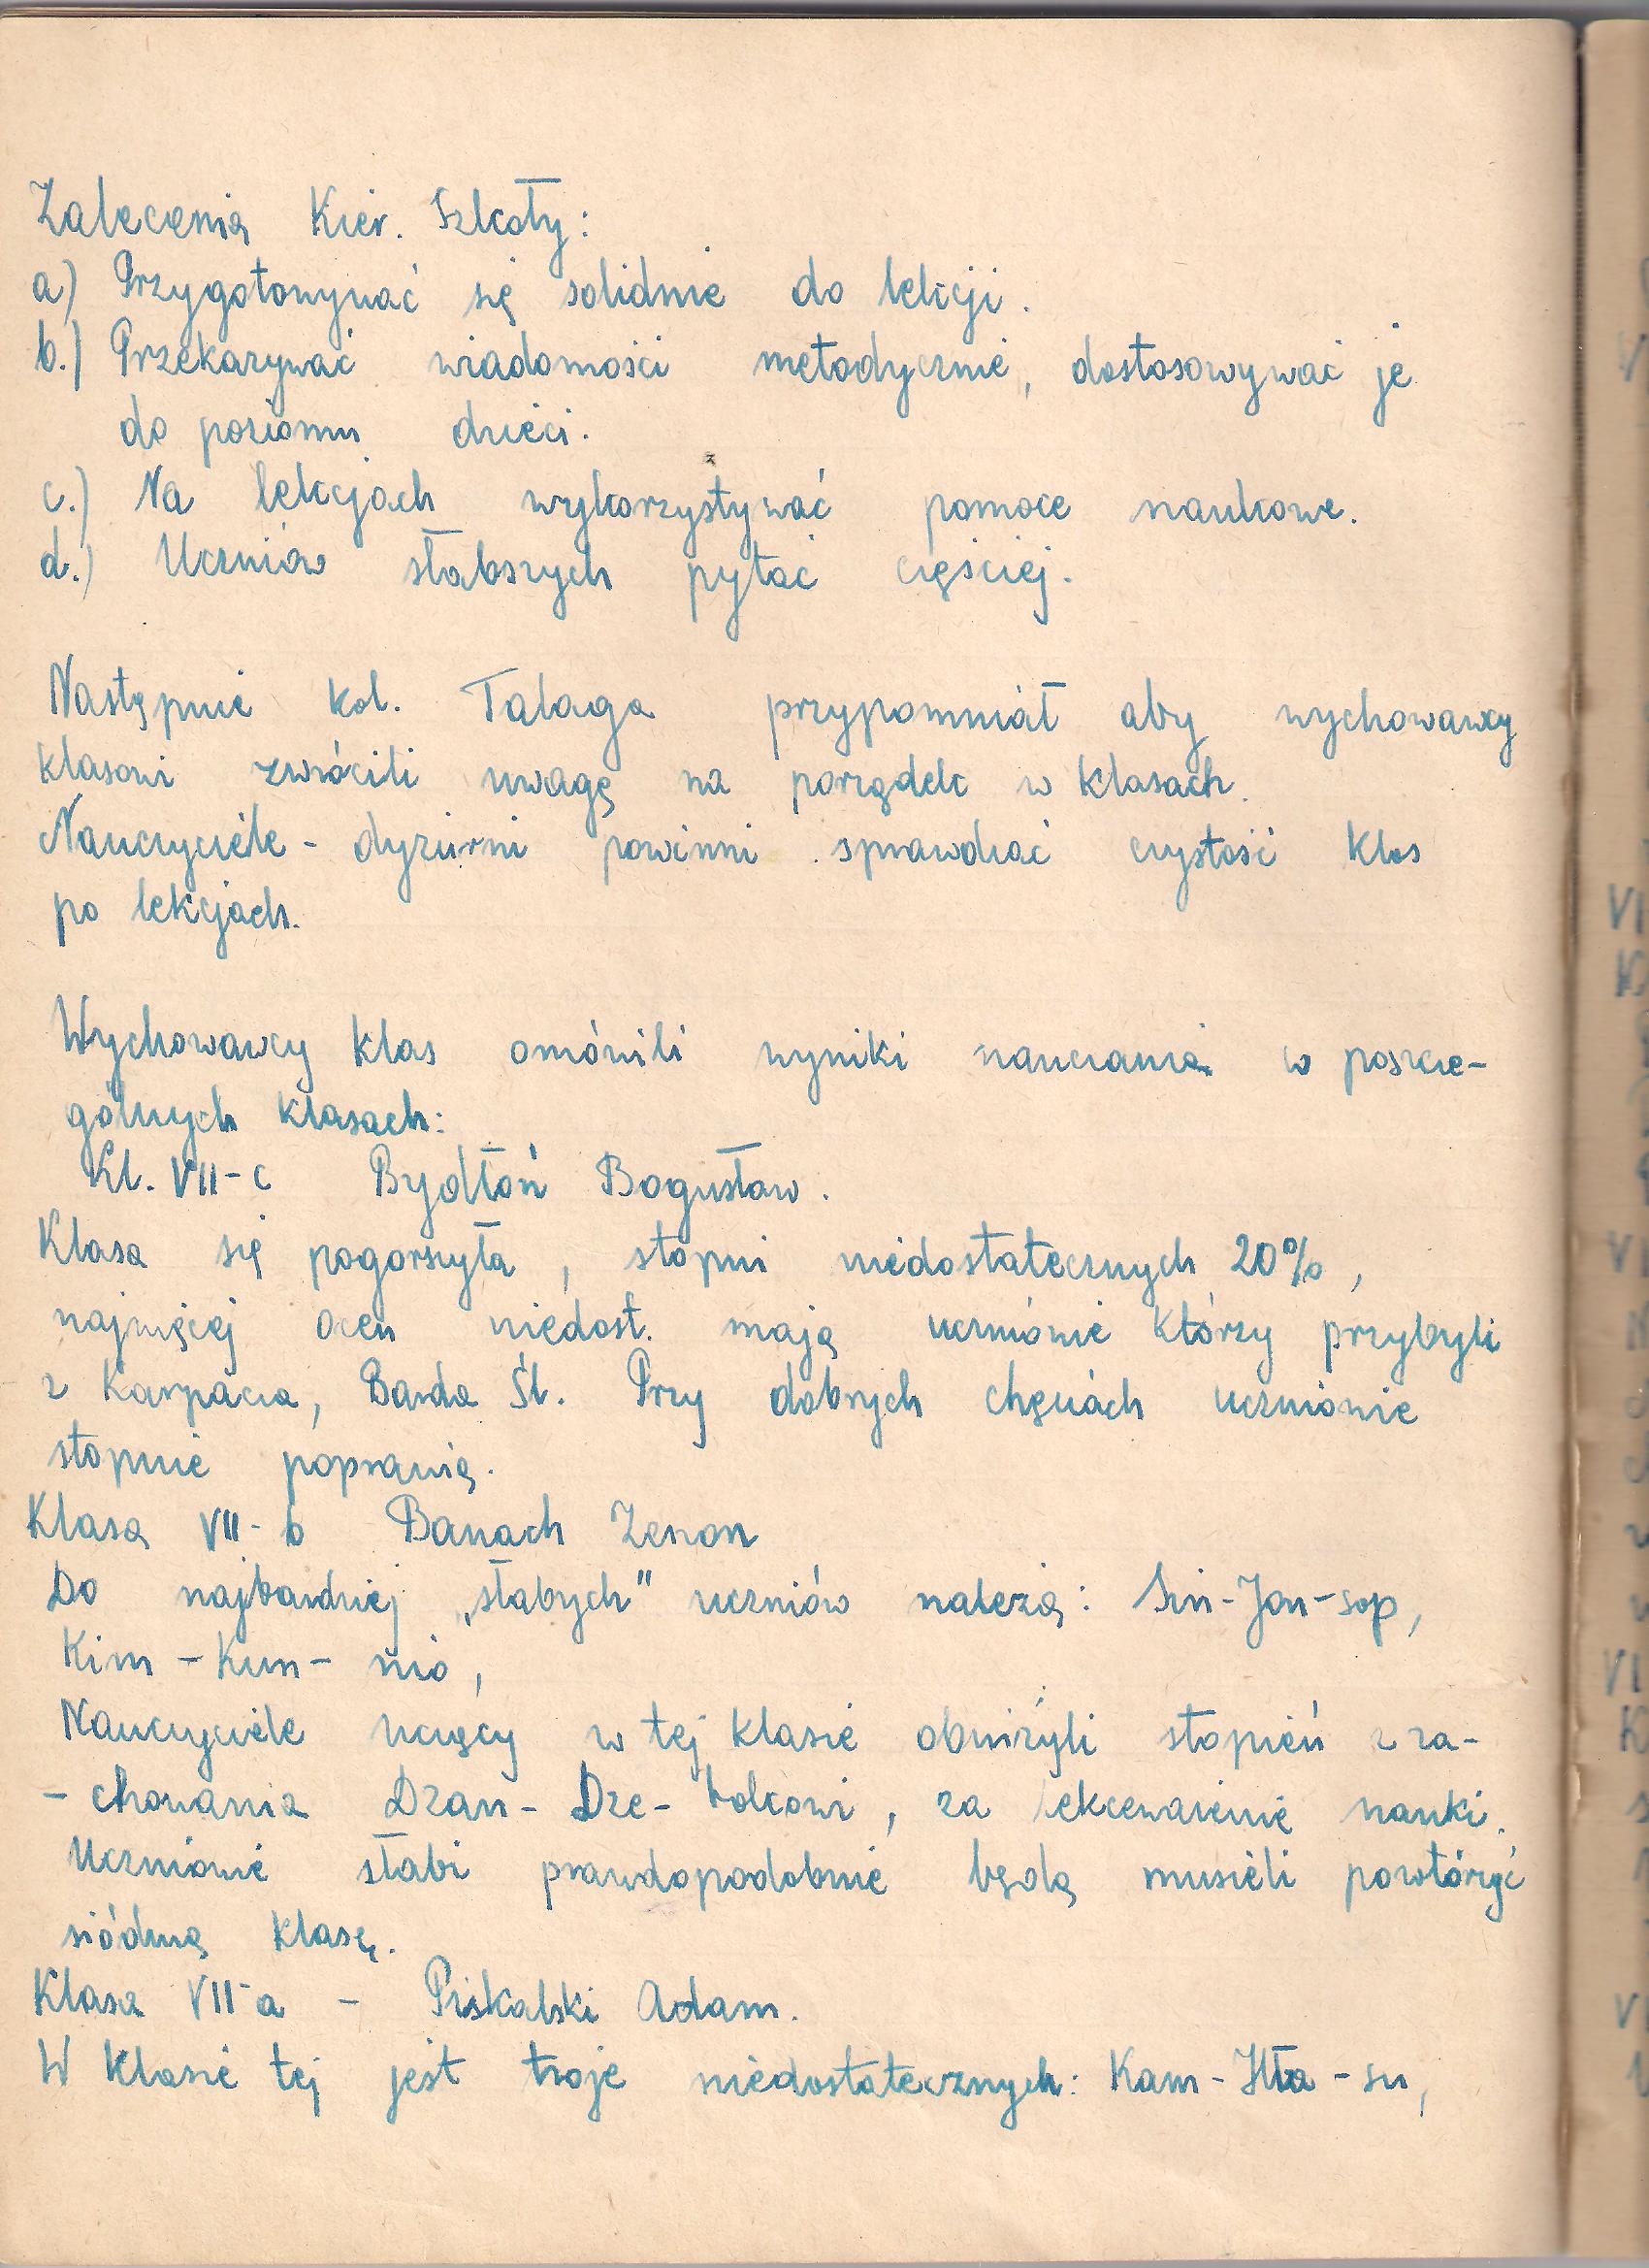 Zalecenia Kier. Szkoły:
a) Przygotowywać się solidnie do lekcji.
b.) Przekazywać wiadomości metodycznie, dostosowywać je
do poziomu dzieci.
c.) Na lekcjach wykorzystywać pomoce naukowe.
d.) Uczniów słabszych pytać częściej.
Następnie kol. Talaga przypomniał aby wychowawcy
klasowi zwrócili uwagę na porządek w klasach.
Nauczyciele - dyżurni powinni sprawdzać czystość klas
po lekcjach.
Wychowawcy klas omówili wyniki nauczania w poszcze-
gólnych klasach:
Kl. VII-c Bydłoń Bogusław.
Klasa się pogorszyła, stopni niedostatecznych 20%,
najwięcej ocen niedost. mają uczniowie którzy przybyli
z Karpacza, Barda Śl. Przy dobrych chęciach uczniowie
stopnie poprawią.
Klasa VII-b Banach Zenon
Do najbardziej „słabych" uczniów należą: Sin-Jon-sop,
Kim-Kun-nio,
Nauczyciele uczący w tej klasie obniżyli stopień z za-
-chowania Dzan-Dze-bolcowi, za lekceważenie nauki.
Uczniowie słabi prawdopodobnie będą musieli powtórzyć
siódmą klasę.
Klasa VII-a - Piskalski Adam.
W klasie tej jest troje niedostatecznych: Kam-Hła-su,